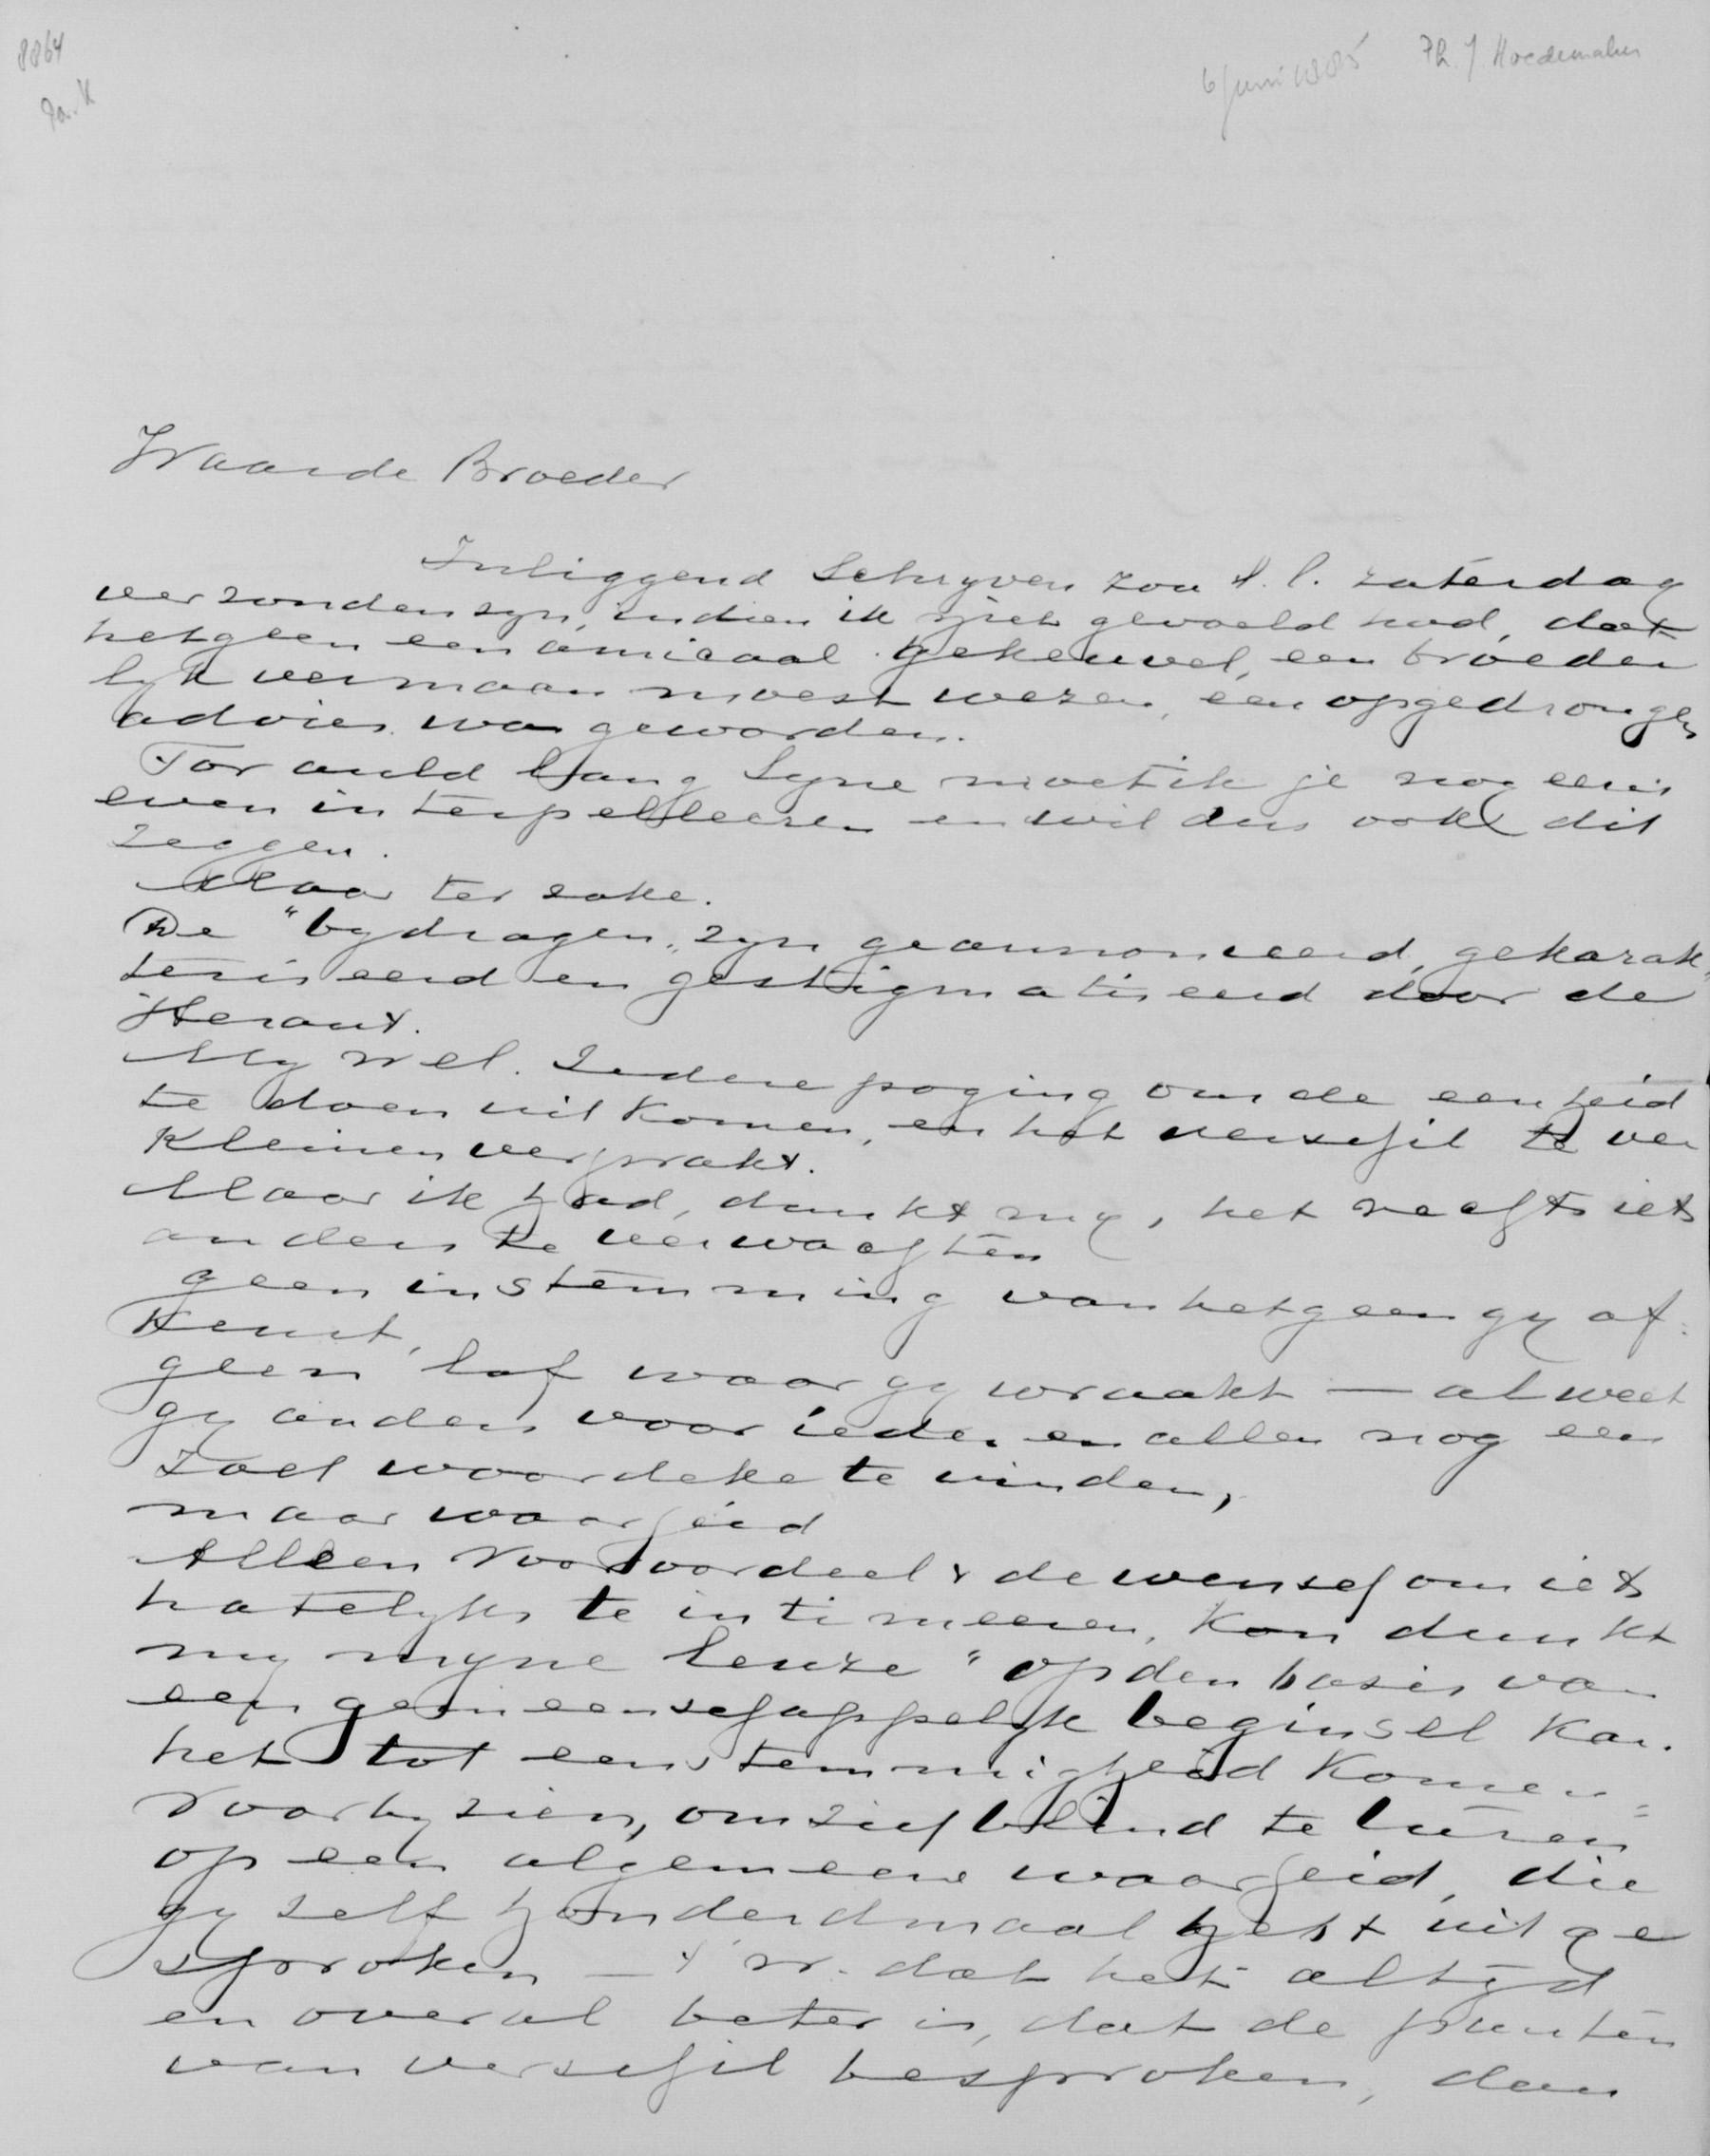 8864
6 juni 1885 Ph. J Hoedemaker
Waarde Broeder
Inliggend Schryven zou l.l. zaterdag
verzonden zyn, indien ik niet gevoeld had, dat
hetgeen een amicaal gekeuvel, een broeder
lyk vermaan moest wezen, een opgedrongen
advies was geworden.
For auld lang Syne moet ik je nog eens
even interpelleeren en wil dus ook dit
zeggen.
Maar ter zake.
De "bydragen" zyn geannonceerd, gekarak
teriseerd en gestigmatiseerd door de
Heraut.
My wel. Iedere poging om de eenheid
te doen uitkomen, en het verschil te ver
kleinen verzwakt.
Maar ik had, dunkt my, het recht iets
anders te verwachten
geen instemming van hetgeen gy af-
keurt,
geen lof waar gy wraakt — al weet
gy anders voor ieder en allen nog een
zoet woordeke te vinden,
maar waarheid
Alleen Vooroordeel & de wensch om iets
hatelyks te intimeeren, kon dunkt
my myne leuze "op den basis van
een gemeenschappelyk beginsel kan
het tot eenstemmigheid komen"
Voorbyzien, om zich blind te turen
op een algemeene waarheid, die
gy zelf honderdmaal hebt uitge
sproken — dat het altyd
en overal beter is, dat de punten
van verschil besproken, dan